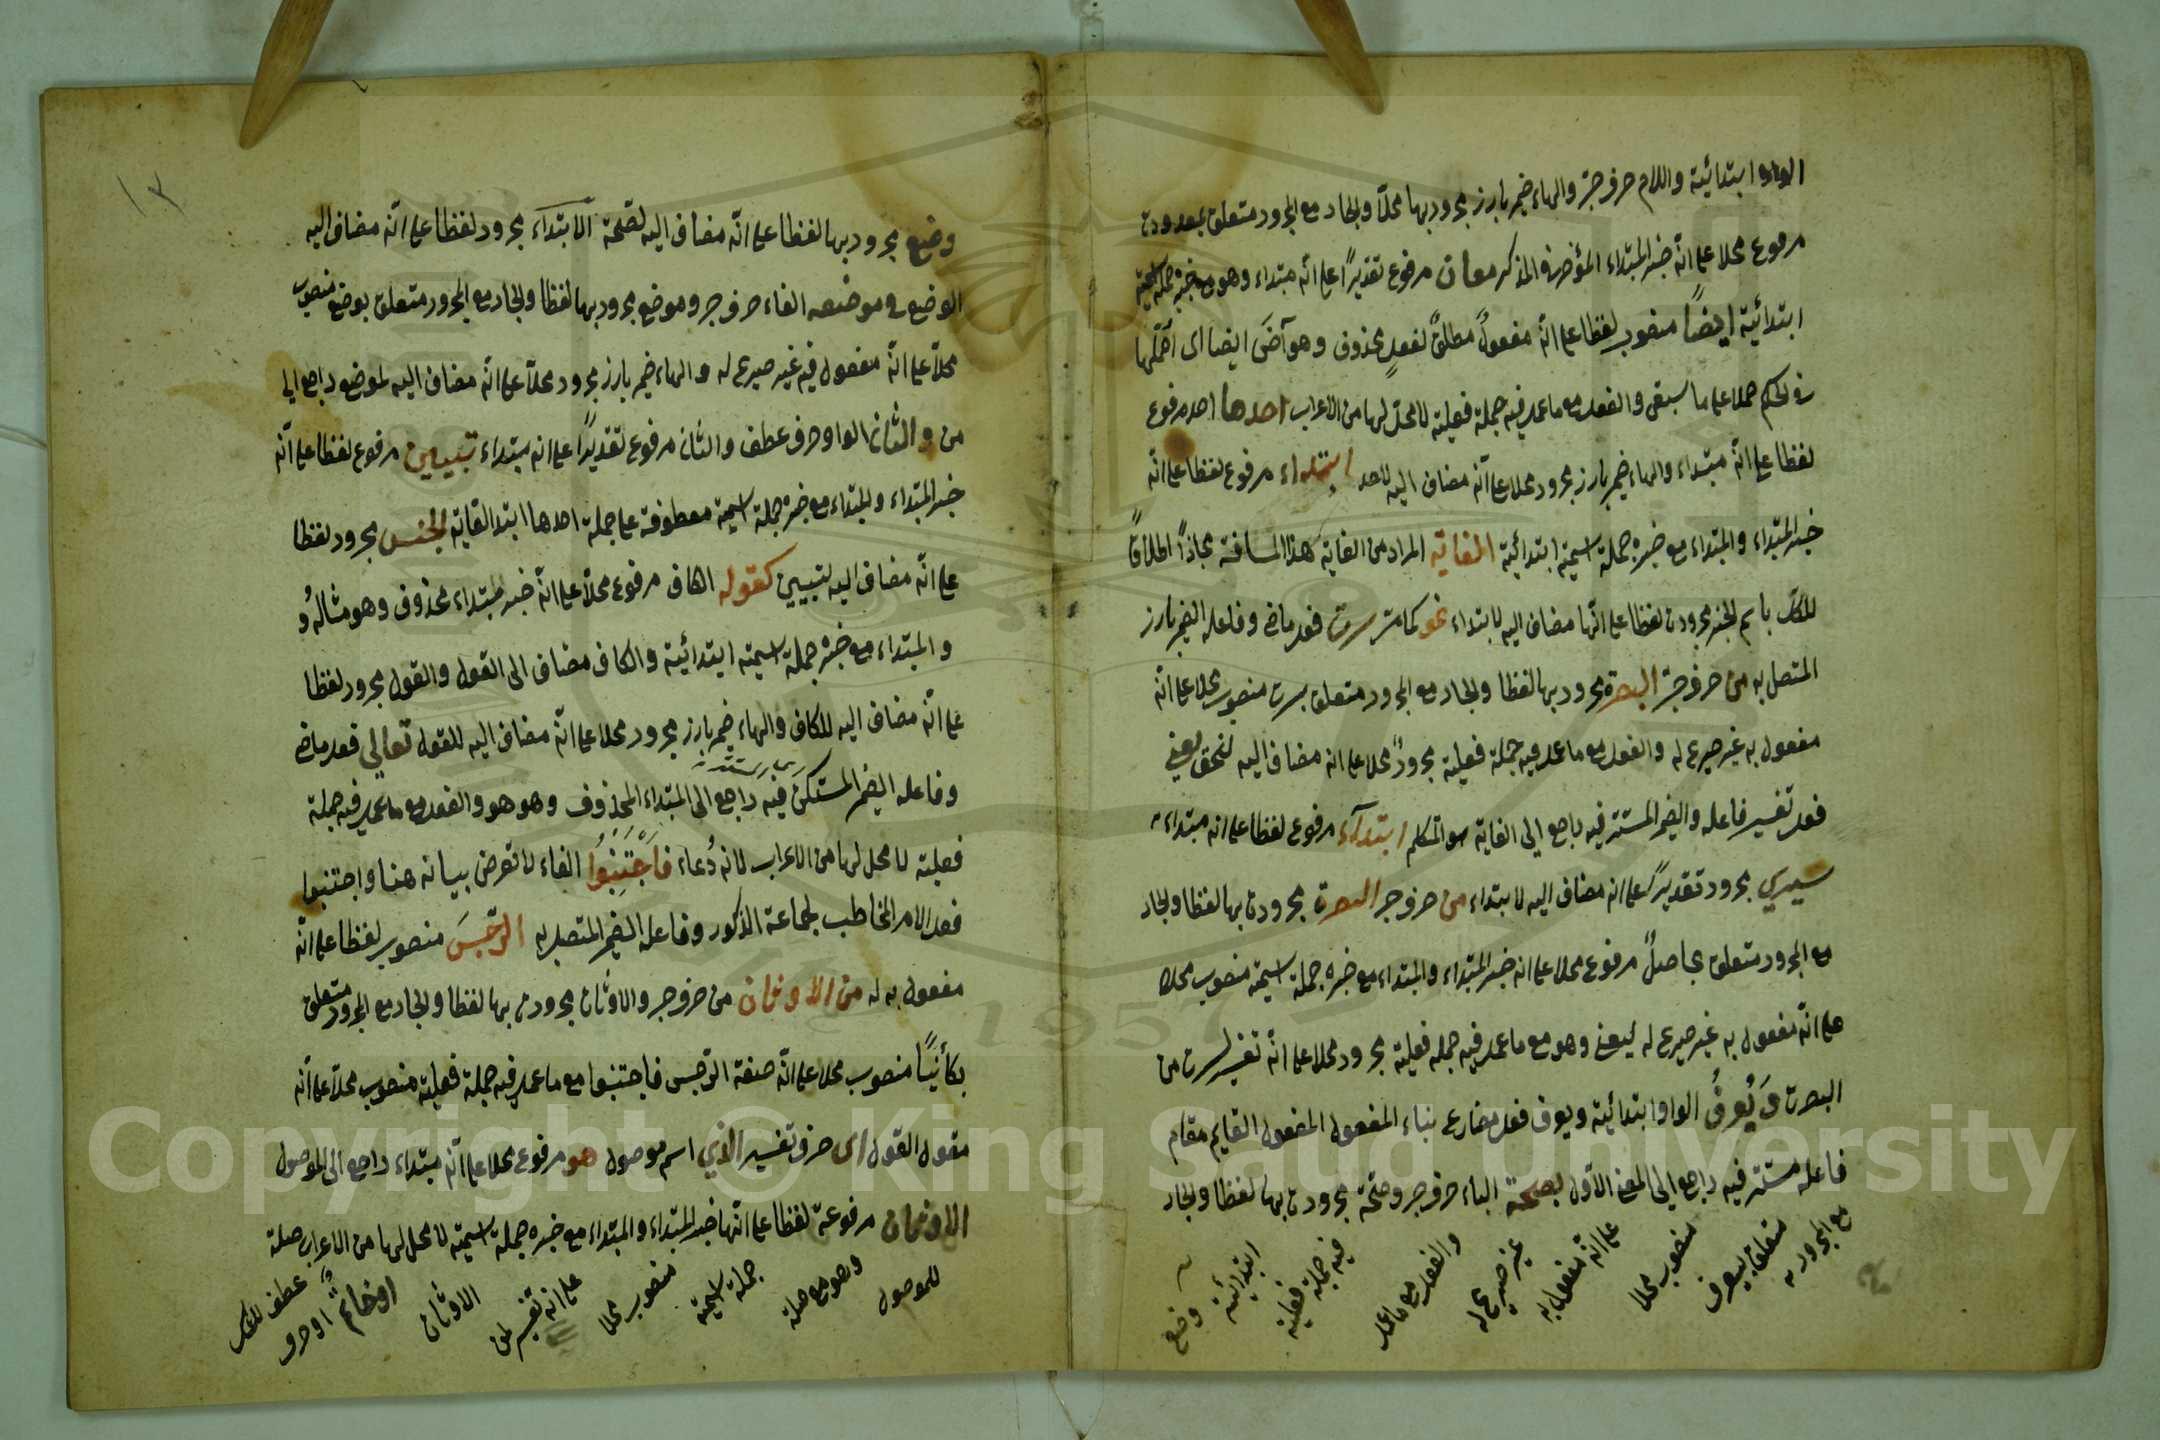 الواو ابتدائية واللام حرف جر والهاء ضمير بارز مجرور بها محلا والجار مع المجرور متعلق بمعدودن
مرفوع محلا على انّه خبر المبتداء المؤخر في الذكر معان مرفوع تقديرًا على انّه مبتداء وهو مع خبره جملة اسمية
ابتدائية ايضًا منصوب لفظا على انّه مفعولٌ مطلقٌ لفعلٍ محذوف وهو آضَ ايضا اى
في الحكم حملا على ما سبق والفعل مع ما عمل فيه جملة فعلية لا محلّ لها من الاعراب احدها احد مرفوع
لفظا على انّه مبتداء والهاء ضمير بارز مجرور محلا على انّه مضاف اليه لاحد ابتداء مرفوع لفظا على انّه
خبر المبتداء والمبتداء مع خبره جملة اسمية ابتدائية الغاية المراد من الغاية هذا المسافة مجازًا اطلاقًا
للكل باسم الجزء مجرودة لفظا على انّها مضاف اليه لابتداء نحو كما مرّ سرت فعل ماض وفاعله الضمير بارز
المتصل به من حرف جرّ البصرة مجرود بها لفظا والجار مع المجرور متعلق بسرت منصوب محلا على انّه
مفعول به غير صريح له والفعل مع ما عمل فيه جملة فعلية مجرورٌ محلا على انه مضاف اليه لنحو يعني
فعل تفسير فاعله والضمير المستتر فيه راجع الى الغاية سوالمتكلم ابتدآء مرفوع لفظا على انه مبتداء
سيري مجرود تقديرًا على انه مضاف اليه لابتداء من حرف جر البصرة مجرودة بها لفظا والجار
مع المجرور متعلق بحاصلٌ مرفوع محلا على انه خبر المبتداء والمبتداء مع خبره جملة اسمية منصوب محلا
على انّه مفعول به غير صريح له ليعني وهو مع ما عمل فيه جملة فعلية مجرود محلا على انّه تفسير لسرت من
البصرة وَيُعرفُ الواو ابتدائية ويعرف فعل مضارع بناء المفعول المفعول القايم مقام
فاعله مستتر فيه راجع الى المعنى الاوّل بصحة الباء حرف جر وصحّة مجرودة بها لفظا والجار
مع المجرور
متعلق بيعرف
منصوب محلا
على انّه مفعول به
غير صريح له
والفعل مع ما عمل
فيه جملة فعلية
ابتدائية
وضع
وضع مجرود بها لفظا على انّه مضاف اليه لصحّة الابتداء مجرود لفظا على انّه مضاف اليه
الوضع في موضعه الفاء حرف جر وموضع مجرود بها لفظا والجار مع المجرور متعلق بوضع منصوب
محلاّ على انّه مفعول فيه غير صريح له والهاء ضمير بارز مجرود محلاّ على انّه مضاف اليه لموضع راجع الى
من والثان الواو حرف عطف والثان مرفوع تقديرًا على انه مبتداء تبيين مرفوع لفظا على انّه
خبر المبتداء والمبتداء مع خبره جملة اسمية معطوفة على جملة احدها ابتدا الغاية الجنس مجرود لفظا
على انّه مضاف اليه لتبيين كقوله الكاف مرفوع محلاّ على انّه خبر المبتداء محذوف وهو مثالُهُ و
والمبتداء مع خبره جملة اسمية ابتدائية والكاف مضاف الى القول والقول مجرود لفظا
على انّه مضاف اليه للكاف والهاء ضمير بارز مجرود محلا على انّه مضاف اليه للقول تعالي فعل ماض
وفاعله الضمير المستكن فيه راجع الى المبتداء المحذوف وهو هو والفعل مع ما عمل فيه جملة
فعلية لا محل لها من الاعراب لانه دُعاء فَاجْتَنِبُوا الفاء لا تعرض بيانه هنا واجتنبوا
فعل الامر المخاطب لجماعة الذكور وفاعله الضمير المتصل به الرّجسَ منصوب لفظا على انّه
مفعول به له من الاوثان من حرف جر والاوثان مجرودة بها لفظا والجار مع المجرور متعلق
بكائنًا منصوب محلا على انّه صفة الرّجس فاجتنبوا مع ما عمل فيه جملة فعلية منصوب محلاّ على انّه
مقول القول اى حرف تفسير الذي اسم موصول هو مرفوع محلا على انّه مبتداء راجع الى الموصول
الاوثان مرفوعة لفظا على انّها خبر المبتداء والمبتداء مع خبره جملة اسمية لا محل لها من الاعراب صلة
للموصول
وهو مع صلة
جملة اسمية
منصوب محلا
على انه تفسير لمن
الاوثان
او حرف
عطف